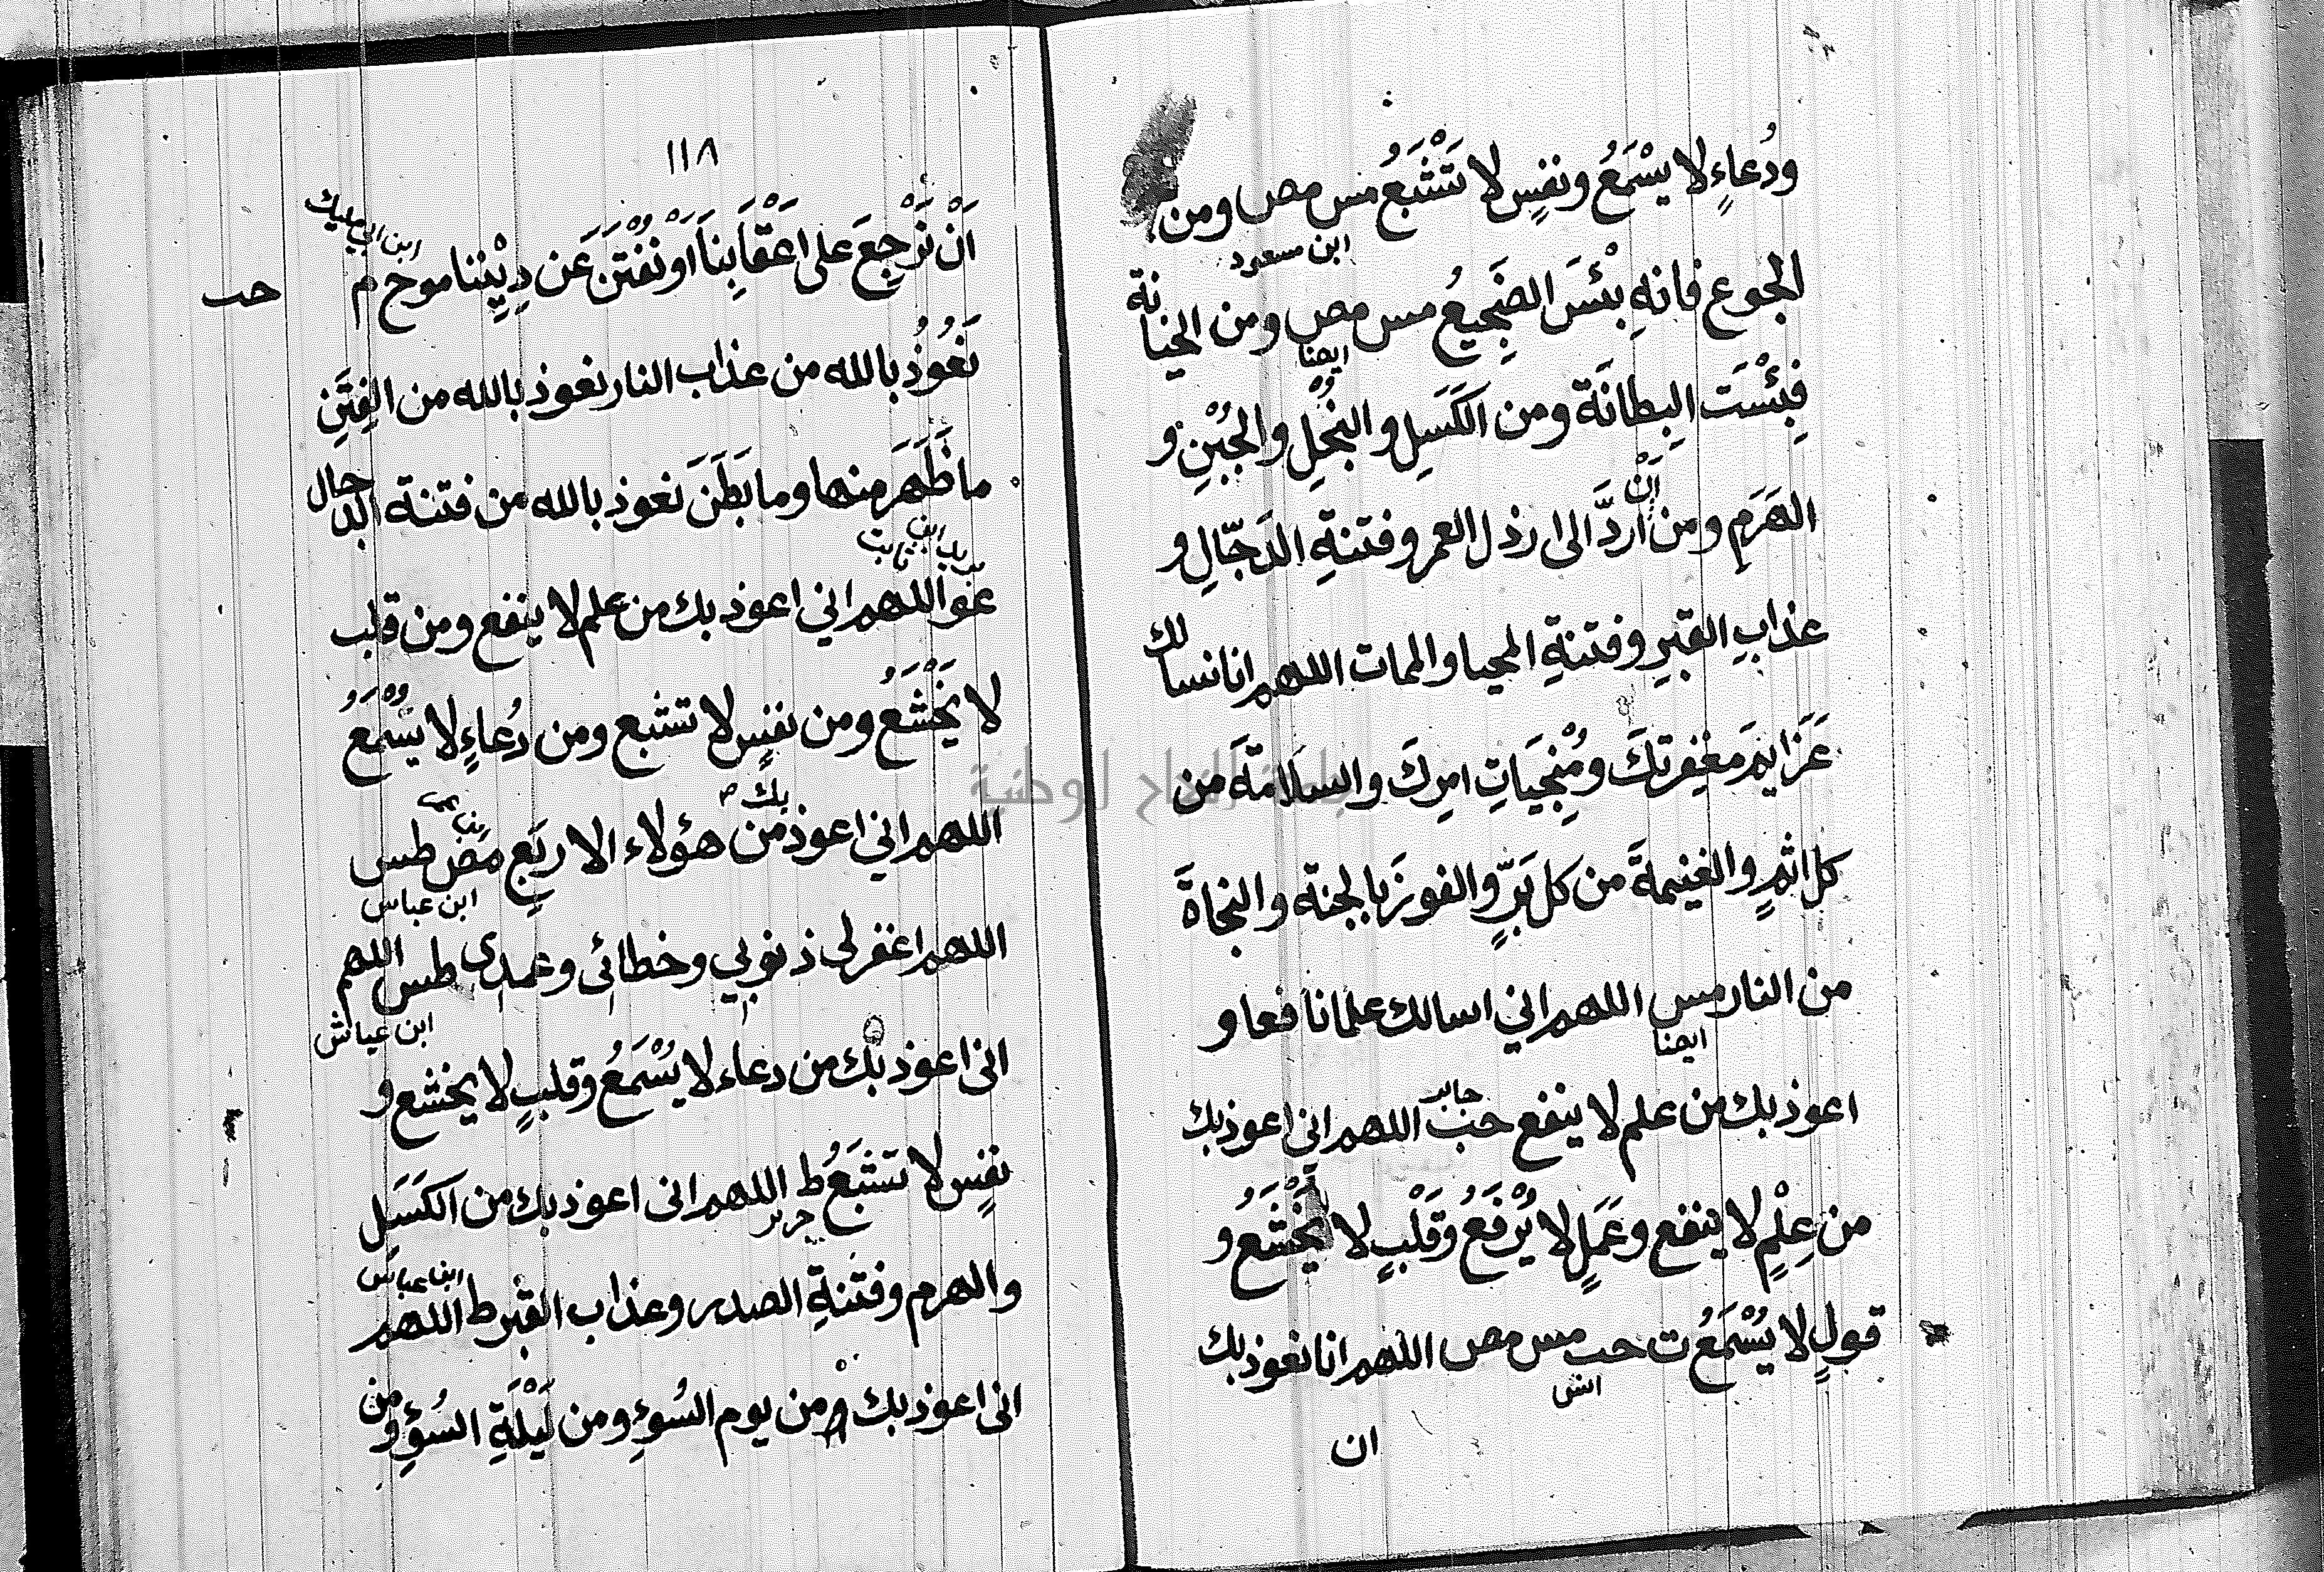 ودُعاءٍ لا يسْمَعُ ونفسٍ لا تَشْبَعُ مس مص ومن
ابن مسعود
الجوع فانه بِئْسَ الضَجِيعُ مس مص ومن الخيانة
ايضا
فبِئْسَت البِطانَة ومن الكَسَلِ والبُخْلِ والجُبْنِ و
الهَرَمِ ومن اَنْ اردَّ الى ارذل العمر وفتنةِ الدَجّالِ و
عذابِ القبرِ وفتنةِ المحيا والممات اللهم انا نسالك
عَزَايمَ مغفِرتكَ ومُنْجِيَاتِ امرِكَ والسلامَةَ من
كل اثمٍ والغنيمةَ من كل بَرٍّ والفوزَ بالجنة والنجاةَ
من النار مس اللهم اني اسالك علما نافعا و
ايضا
اعوذ بك من علم لا ينفع حب اللهم اني اعوذ بك
جابر
من عِلْمٍ لا ينفع وعَمَلٍ لا يُرْفَعُ وَقَلْبٍ لا يَخْشَعُ و
قولٍ لا يُسْمَعُ ت حب مس مص اللهم انا نعوذ بك
انس
ان
١١٨
اَنْ نَرْجِعَ على اعَقْابِنَا اَوْ نُفْتَنَ عَن دِيْنِنا مو خ م
ابن ابي مليك
حب
نَعُوُذُ بالله من عذاب النار نعوذ بالله من الفِتَنِ
ما ظَهَرَ منها وما بَطَنَ نعوذ بالله من فتنة الدجال
ابن ثابت
عو اللهم اني اعوذ بك من علم لا ينفع ومن قلب
لا يَخْشَعُ ومن نفسٍ لا تشبع ومن دُعاءٍ لا يُسْمَعُ
اللهم اني اعوذ بك من هؤلاء الاربَعِ مص طس
ابن عباس
اللهم اغفر لي ذنوبي وخطائى وعمدى طس اللهم
ابن عباش
انى اعوذ بك من دعاء لا يُسْمَعُ وقلبٍ لا يخشع و
نفسٍ لا تشبَعُ ط اللهم انى اعوذ بك من الكَسَل
جرير
والهرم وفتنةِ الصدر وعذاب القبر ط اللهم
ابن عباس
انى اعوذ بك من يوم السُوءِ ومن لَيْلَةِ السُوءِ ومن